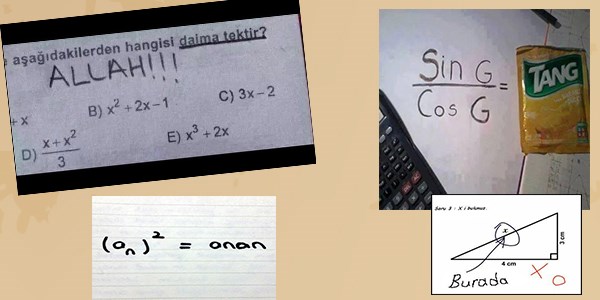 aşağıdakilerden hangisi daima tektir?
ALLAH!!!
+x
B) x² + 2x - 1
C) 3x - 2
D) x + x² / 3
E) x³ + 2x
Sin G / Cos G =
TANG
(on)² = onon
Soru 3 : X i bulunuz.
x
3 cm
4 cm
Burada
X
O